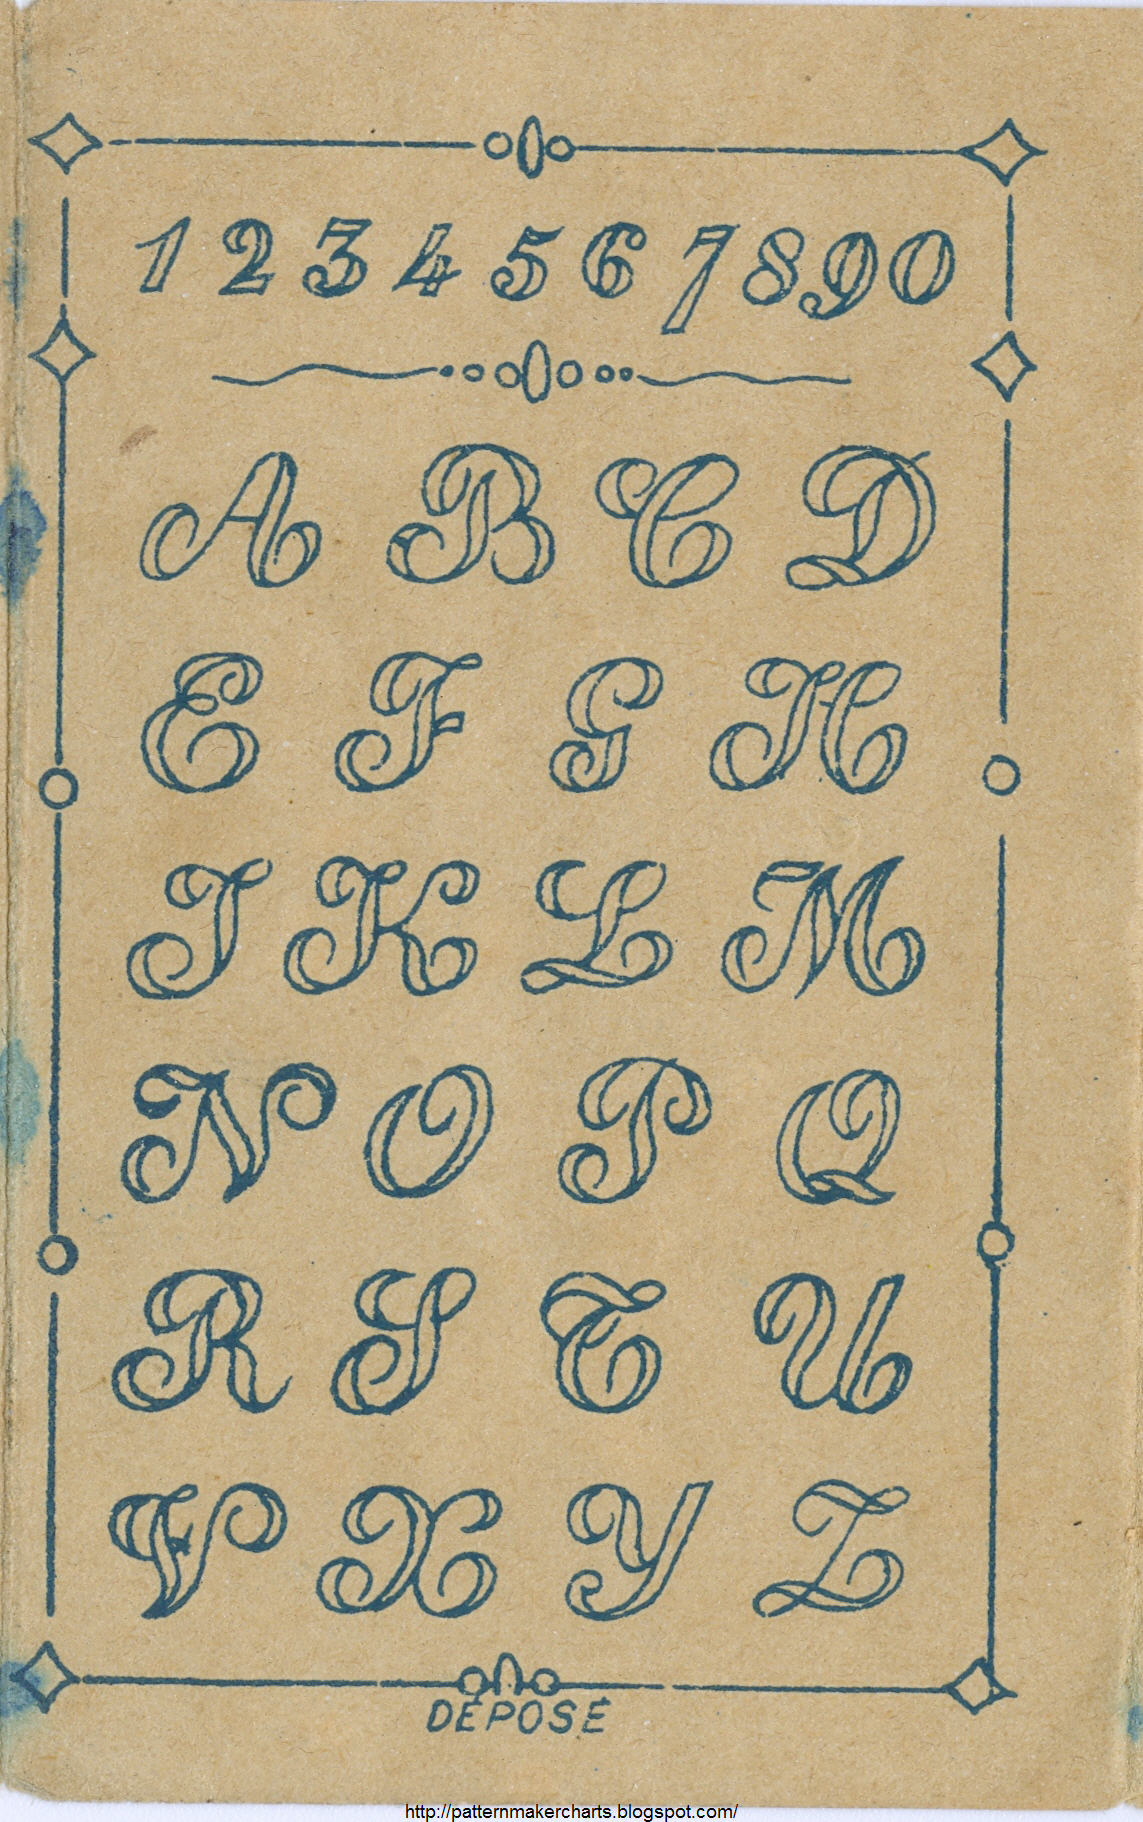 1 2 3 4 5 6 7 8 9 0
A B C D
E F G H
I K L M
N O P Q
R S T U
V X Y Z
DÉPOSÉ
http://patternmakercharts.blogspot.com/